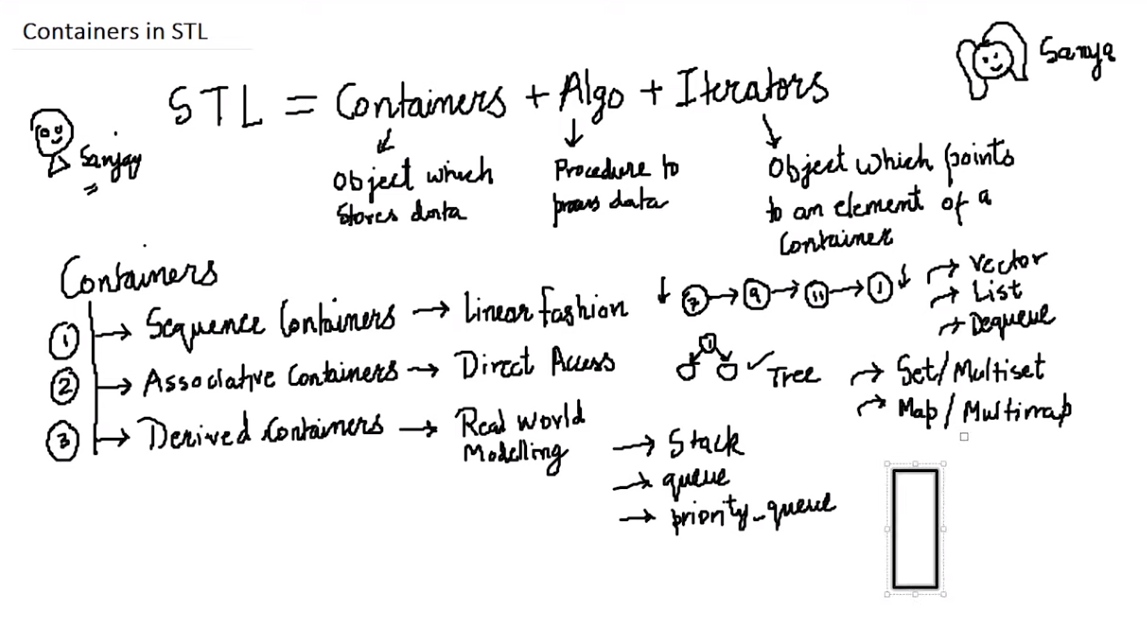 Containers in STL
Sanya
STL = Containers + Algo + Iterators
Sanjay
Object which
stores data
Procedure to
process data
Object which points
to an element of a
Container
Containers
1 Sequence Containers → Linear Fashion
7 → 9 → 11 → 1
→ Vector
→ List
→ Dequeue
2 Associative Containers → Direct Access
1
✓ Tree
→ Set/Multiset
→ Map/Multimap
3 Derived Containers → Real World
Modelling
→ Stack
→ queue
→ priority_queue